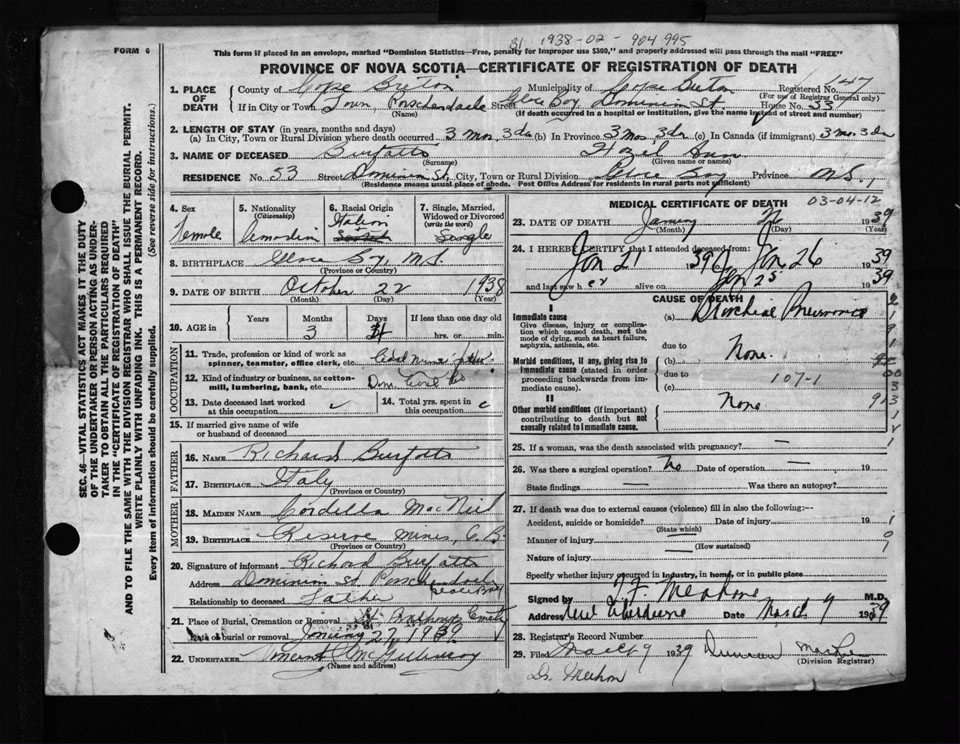 FORM 6
This form if placed in an envelope, marked "Dominion Statistics—Free, penalty for improper use $300," and properly addressed will pass through the mail "FREE"
81 1938-02-904995
PROVINCE OF NOVA SCOTIA—CERTIFICATE OF REGISTRATION OF DEATH
1. PLACE OF DEATH County of Cape Breton Municipality of Cape Breton Registered No. 147
(For use of Registrar General only)
If in City or Town Town, Street Glace Bay Dominion St. House No. 53
(Name) (If death occurred in a hospital or institution, give the name instead of street and number)
2. LENGTH OF STAY (in years, months and days)
(a) In City, Town or Rural Division where death occurred 3 mos. 3 ds (b) In Province 3 mos. 3 ds (c) In Canada (if immigrant) 3 mos. 3 ds
3. NAME OF DECEASED Burfatto Hazel Ann
(Surname) (Given name or names)
RESIDENCE No. 53 Street Dominion St, City, Town or Rural Division Glace Bay Province N.S.,
(Residence means usual place of abode. Post Office Address for residents in rural parts not sufficient)
4. Sex Female
5. Nationality (Citizenship) Canadian
6. Racial Origin Italian
7. Single, Married, Widowed or Divorced (write the word) Single
8. BIRTHPLACE Glace Bay, N.S.
(Province or Country)
9. DATE OF BIRTH October 22 1938
(Month) (Day) (Year)
10. AGE in Years Months 3 Days If less than one day old
hrs. or min.
OCCUPATION
11. Trade, profession or kind of work as spinner, teamster, office clerk, etc.
12. Kind of industry or business, as cotton-mill, lumbering, bank, etc. Dom. Coal Co
13. Date deceased last worked at this occupation
14. Total yrs. spent in this occupation
15. If married give name of wife or husband of deceased
FATHER
16. NAME Richard Burfatto
17. BIRTHPLACE Italy
(Province or Country)
MOTHER
18. MAIDEN NAME Cordella MacNeil
19. BIRTHPLACE Reserve Mines, C.B
(Province or Country)
20. Signature of informant Richard Burfatto
Address Dominion St.
Glace Bay
Relationship to deceased Father
21. Place of Burial, Cremation or Removal
Date of burial or removal January 27, 1939
22. UNDERTAKER Vincent McGillivray
(Name and address)
MEDICAL CERTIFICATE OF DEATH
03-04-12
23. DATE OF DEATH January 1939
(Month) (Day) (Year)
24. I HEREBY CERTIFY that I attended deceased from:
Jan 21 1939 to Jan 26 1939
and last saw her alive on Jan 25 1939
CAUSE OF DEATH
I
Immediate cause
Give disease, injury or complication which caused death, not the mode of dying, such as heart failure, asphyxia, asthenia, etc.
(a) Bronchial Pneumonia
due to
Morbid conditions, if any, giving rise to immediate cause (stated in order proceeding backwards from immediate cause).
(b) None.
due to
(c) 107-1
II
Other morbid conditions (if important) contributing to death but not causally related to immediate cause.
None
25. If a woman, was the death associated with pregnancy? —
26. Was there a surgical operation? No Date of operation — 19
State findings — Was there an autopsy? —
27. If death was due to external causes (violence) fill in also the following:—
Accident, suicide or homicide? Date of injury 19
(State which)
Manner of injury —
(How sustained)
Nature of injury
Specify whether injury occurred in industry, in home, or in public place
Signed by M.D.
Address New Aberdeen Date March 9 1939
28. Registrar's Record Number
29. Filed March 9 1939 Duncan
(Division Registrar)
SEC. 46—VITAL STATISTICS ACT MAKES IT THE DUTY OF THE UNDERTAKER OR PERSON ACTING AS UNDERTAKER TO OBTAIN ALL THE PARTICULARS REQUIRED IN THE "CERTIFICATE OF REGISTRATION OF DEATH" AND TO FILE THE SAME WITH THE DIVISION REGISTRAR WHO SHALL ISSUE THE BURIAL PERMIT.
WRITE PLAINLY WITH UNFADING INK. THIS IS A PERMANENT RECORD.
Every item of information should be carefully supplied. (See reverse side for instructions.)